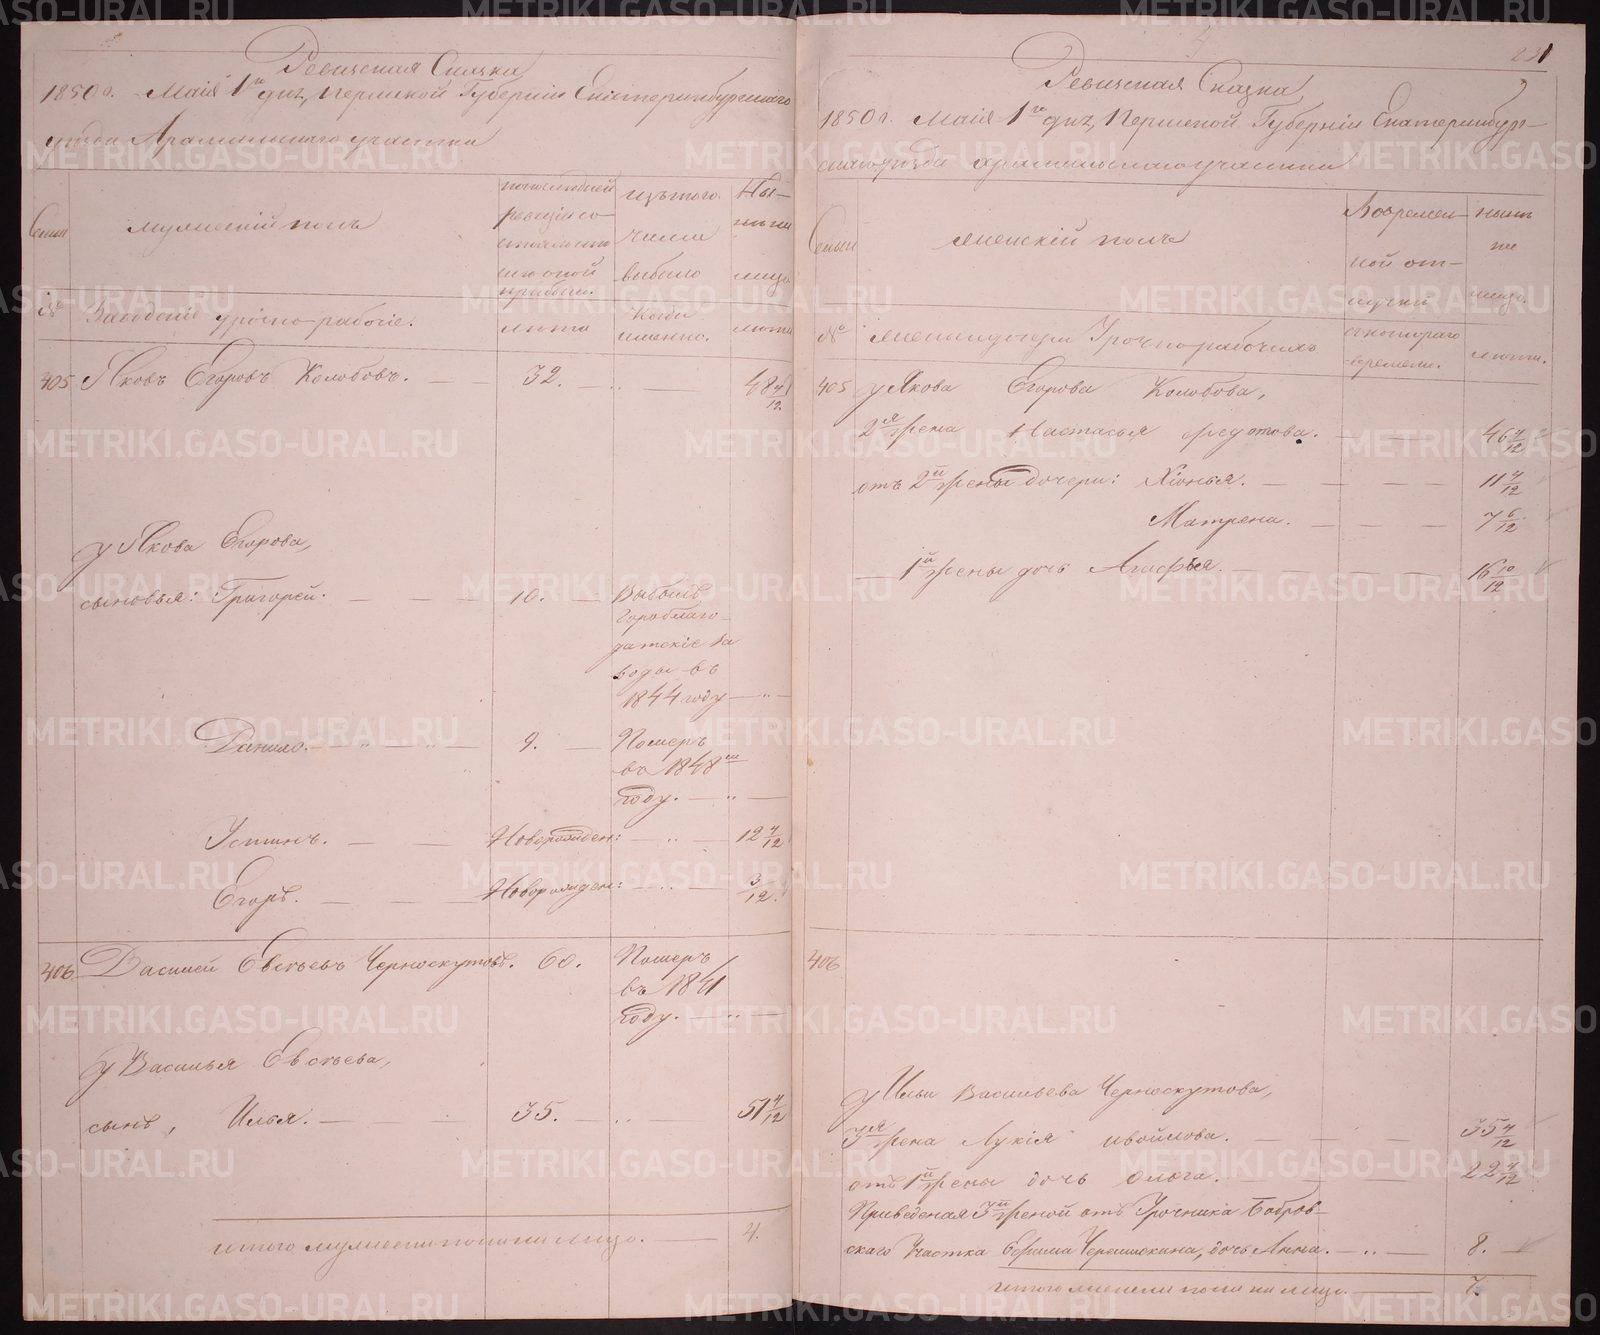 Ревизская Сказка
1850 г. Маія 1го дня, Пермской Губерніи Екатеринбургскаго
уезда Арамильскаго участка
Семьи
мужескій полъ
по последней
ревизіи со-
стояло и
после оной
прибыло.
изъ того
числа
выбыло
Ны-
не на
лицо
№
Заводскіе урочно-рабочіе.
лета
Когда
именно.
лета
405
Яковъ Егоровъ Колобовъ. — 32. — „ — 48 4/12
у Якова Егорова,
сыновья: Григорей. — — 10. — Выбылъ
Гороблаго-
датскіе за
воды въ
1844 году — „ —
Данило. — „ — „ — 9. — Померъ
въ 1848м
году. — „ —
Устинъ. — — Новорожден: — „ — 12 4/12
Егоръ. — — — Новорожден: — „ — 3/12.
406
Василей Евсеевъ Черноскутовъ. 60. Померъ
въ 1841
году. — „ —
у Василья Евсеева,
сынъ, Илья. — — — 35. — „ — 51 4/12
итого мужеска пола на лицо. — 4.
231
Ревизская Сказка
1850 г. Маія 1го дня, Пермской Губерніи Екатеринбург-
скаго уезда Арамильскаго участка
Семьи
женскій полъ
Во времен-
ной от-
лучке
ныне
на
лицо.
№
жены и дочери Урочнорабочихъ
съ котораго
времени.
лета.
405
у Якова Егорова Колобова,
2я жена Настасья Федотова. — — — 46 4/12
отъ 2й жены дочери: Хіонья. — — — — 11 4/12
Матрена. — — — 7 6/12
— 1й жены дочь Агафья. — — — — 16 10/12
406
у Ильи Васильева Черноскутова,
3я жена Лукія Ивойлова. — — — 35 4/12
отъ 1й жены дочь Олога. — — — 22 4/12
Приведеная 3й женой отъ Урочника Бобров-
скаго Участка Ефима Черемискина, дочь Анна. — „ — 8. —
итого женска пола на лицо. — 7.
METRIKI.GASO-URAL.RU